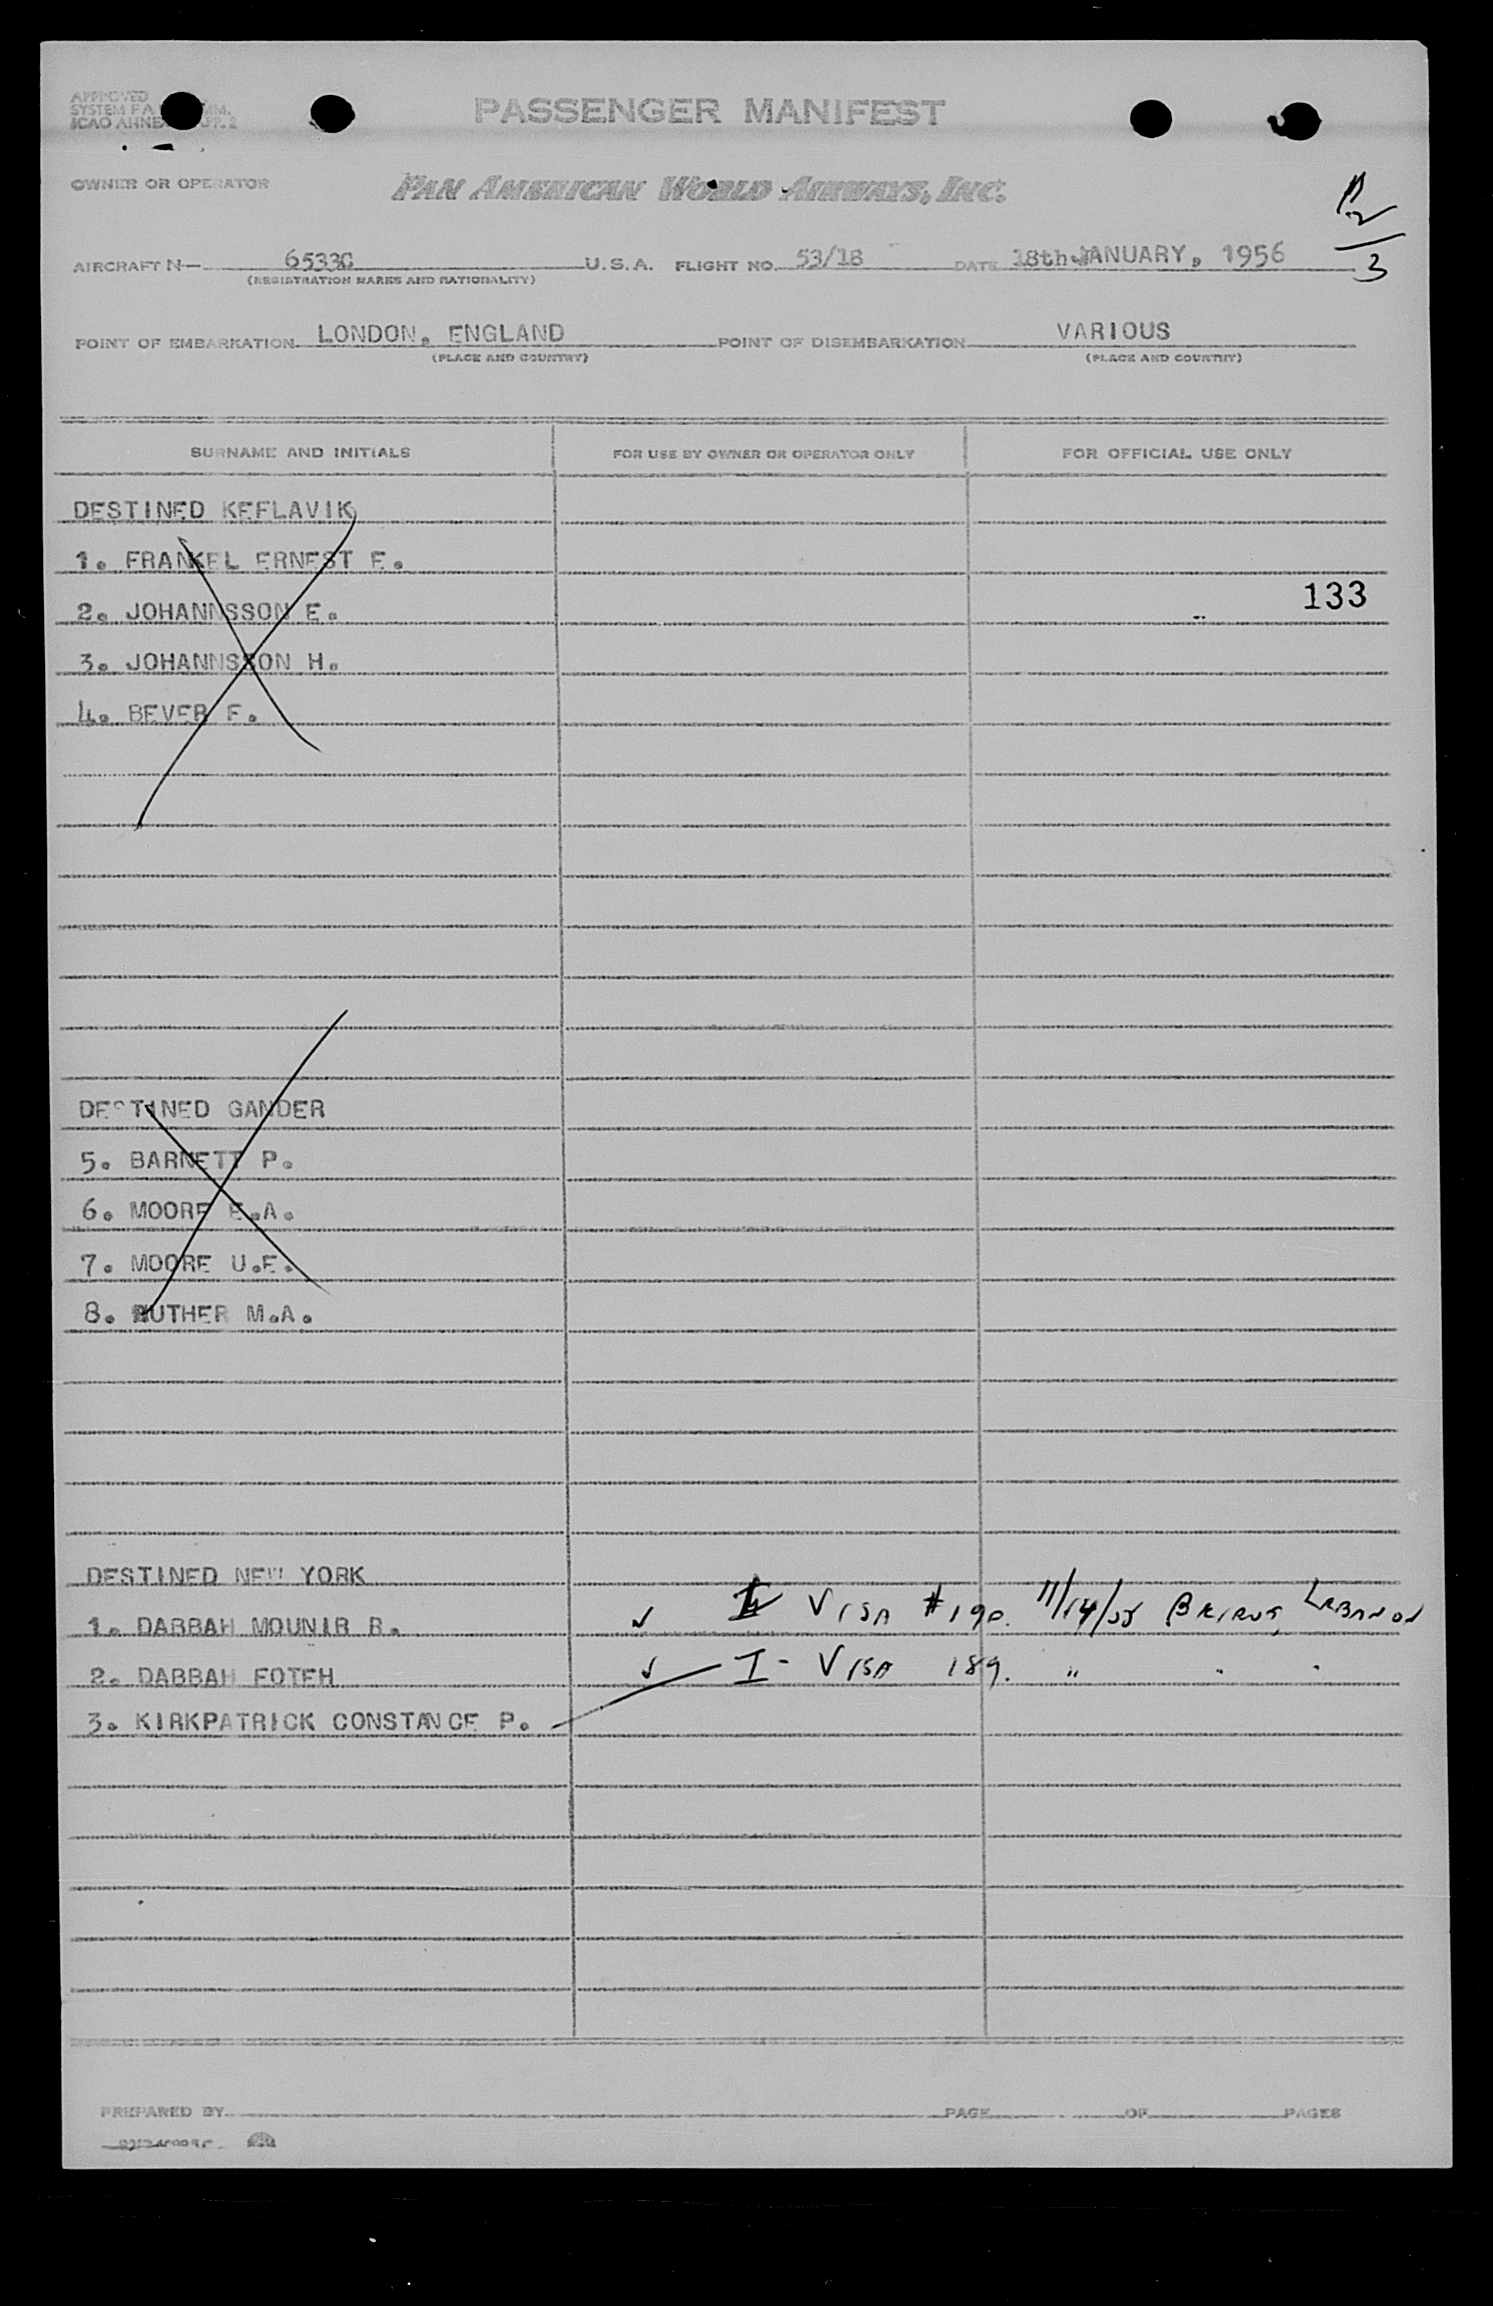 APPROVED
SYSTEM
ICAO
PASSENGER MANIFEST
OWNER OR OPERATOR PAN AMERICAN WORLD AIRWAYS, INC.
AIRCRAFT N— 6533C U.S.A. FLIGHT NO. 53/18 DATE 18th JANUARY, 1956
(REGISTRATION MARKS AND NATIONALITY)
3
POINT OF EMBARKATION LONDON, ENGLAND POINT OF DISEMBARKATION VARIOUS
(PLACE AND COUNTRY) (PLACE AND COUNTRY)
SURNAME AND INITIALS FOR USE BY OWNER OR OPERATOR ONLY FOR OFFICIAL USE ONLY
DESTINED KEFLAVIK
1. FRANKEL ERNEST E.
133
2. JOHANNSSON E.
3. JOHANNSSON H.
4. BEVER F.
DESTINED GANDER
5. BARNETT P.
6. MOORE E.A.
7. MOORE U.E.
8. RUTHER M.A.
DESTINED NEW YORK
1. DABBAH MOUNIR R. ✓ I VISA #190. 11/14/55 BEIRUT, LEBANON
2. DABBAH FOTEH ✓ I - VISA 189. " " "
3. KIRKPATRICK CONSTANCE P.
PREPARED BY PAGE OF PAGES